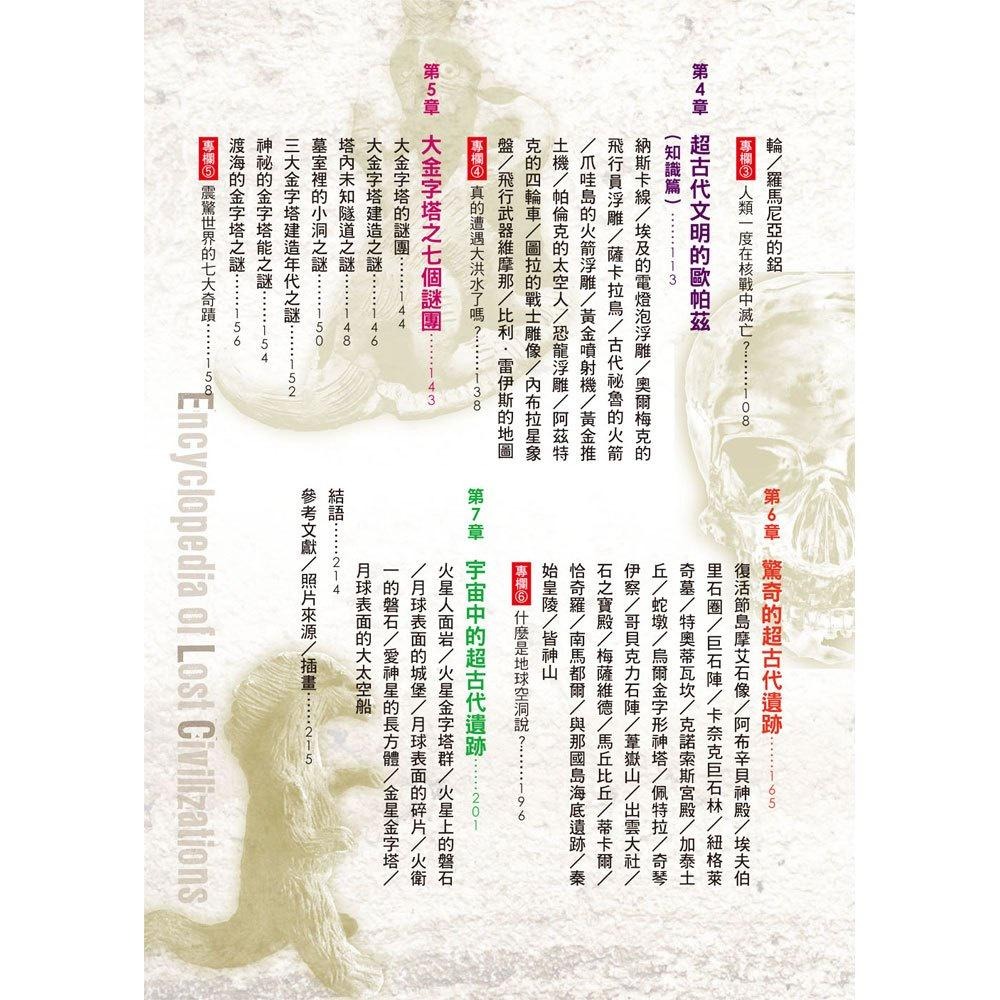 輪／羅馬尼亞的鋁
專欄③ 人類一度在核戰中滅亡？………108
第4章 超古代文明的歐帕茲
（知識篇）……113
納斯卡線／埃及的電燈泡浮雕／奧爾梅克的
飛行員浮雕／薩卡拉鳥／古代祕魯的火箭
／爪哇島的火箭浮雕／黃金噴射機／黃金推
土機／帕倫克的太空人／恐龍浮雕／阿茲特
克的四輪車／圖拉的戰士雕像／內布拉星象
盤／飛行武器維摩那／比利．雷伊斯的地圖
專欄④ 真的遭遇大洪水了嗎？………138
第5章 大金字塔之七個謎團……143
大金字塔的謎團……144
大金字塔建造之謎……146
塔內未知隧道之謎……148
墓室裡的小洞之謎……150
三大金字塔建造年代之謎……152
神祕的金字塔能之謎……154
渡海的金字塔之謎……156
專欄⑤ 震驚世界的七大奇蹟………158
第6章 驚奇的超古代遺跡……165
復活節島摩艾石像／阿布辛貝神殿／埃夫伯
里石圈／巨石陣／卡奈克巨石林／紐格萊
奇墓／特奧蒂瓦坎／克諾索斯宮殿／加泰土
丘／蛇墩／烏爾金字形神塔／佩特拉／奇琴
伊察／哥貝克力石陣／葦嶽山／出雲大社／
石之寶殿／梅薩維德／馬丘比丘／蒂卡爾／
恰奇羅／南馬都爾／與那國島海底遺跡／秦
始皇陵／皆神山
專欄⑥ 什麼是地球空洞說？………196
第7章 宇宙中的超古代遺跡……201
火星人面岩／火星金字塔群／火星上的磐石
／月球表面的城堡／月球表面的碎片／火衛
一的磐石／愛神星的長方體／金星金字塔／
月球表面的大太空船
結語……214
參考文獻／照片來源／插畫……215
Encyclopedia of Lost Civilizations